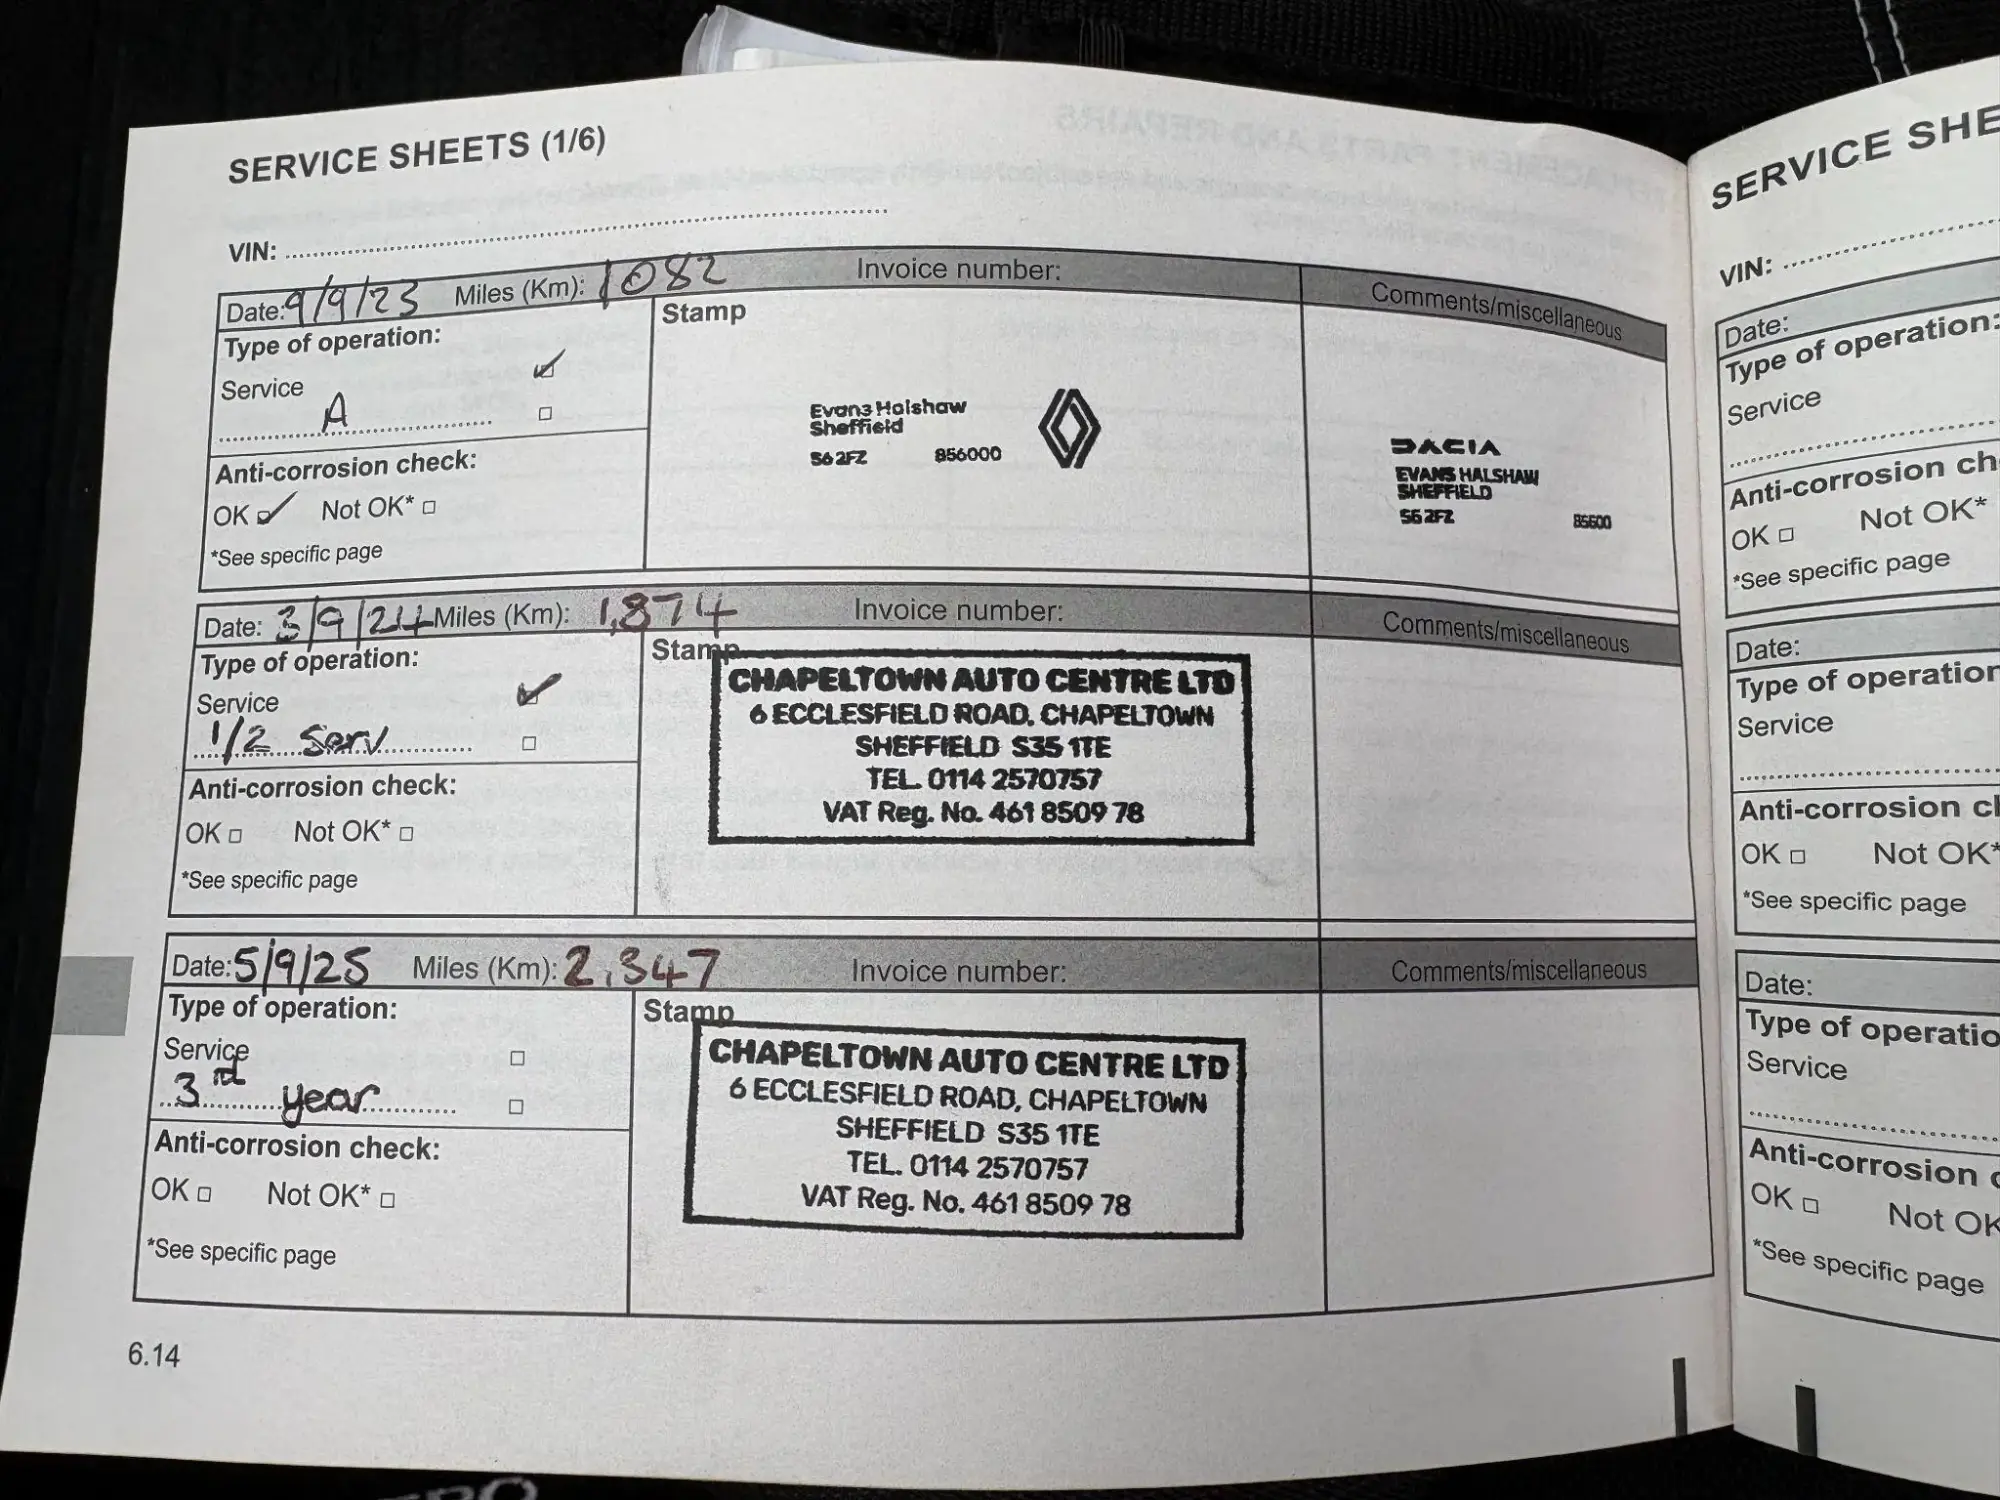 SERVICE SHEETS (1/6)
VIN:
Date: 9/9/23 Miles (Km): 1082 Invoice number: Comments/miscellaneous
Type of operation:
Service
A
Anti-corrosion check:
OK Not OK*
*See specific page
Stamp
Evans Halshaw
Sheffield
S6 2FZ 856000
DACIA
EVANS HALSHAW
SHEFFIELD
S6 2FZ 85600
Date: 3/9/24 Miles (Km): 1,874 Invoice number: Comments/miscellaneous
Type of operation:
Service
1/2 Serv
Anti-corrosion check:
OK Not OK*
*See specific page
Stamp
CHAPELTOWN AUTO CENTRE LTD
6 ECCLESFIELD ROAD, CHAPELTOWN
SHEFFIELD S35 1TE
TEL. 0114 2570757
VAT Reg. No. 461 8509 78
Date: 5/9/25 Miles (Km): 2,347 Invoice number: Comments/miscellaneous
Type of operation:
Service
3rd year
Anti-corrosion check:
OK Not OK*
*See specific page
Stamp
CHAPELTOWN AUTO CENTRE LTD
6 ECCLESFIELD ROAD, CHAPELTOWN
SHEFFIELD S35 1TE
TEL. 0114 2570757
VAT Reg. No. 461 8509 78
6.14
SERVICE SHE
VIN:
Date:
Type of operation:
Service
Anti-corrosion ch
OK Not OK*
*See specific page
Date:
Type of operation
Service
Anti-corrosion c
OK Not OK*
*See specific page
Date:
Type of operatio
Service
Anti-corrosion
OK Not OK
*See specific page